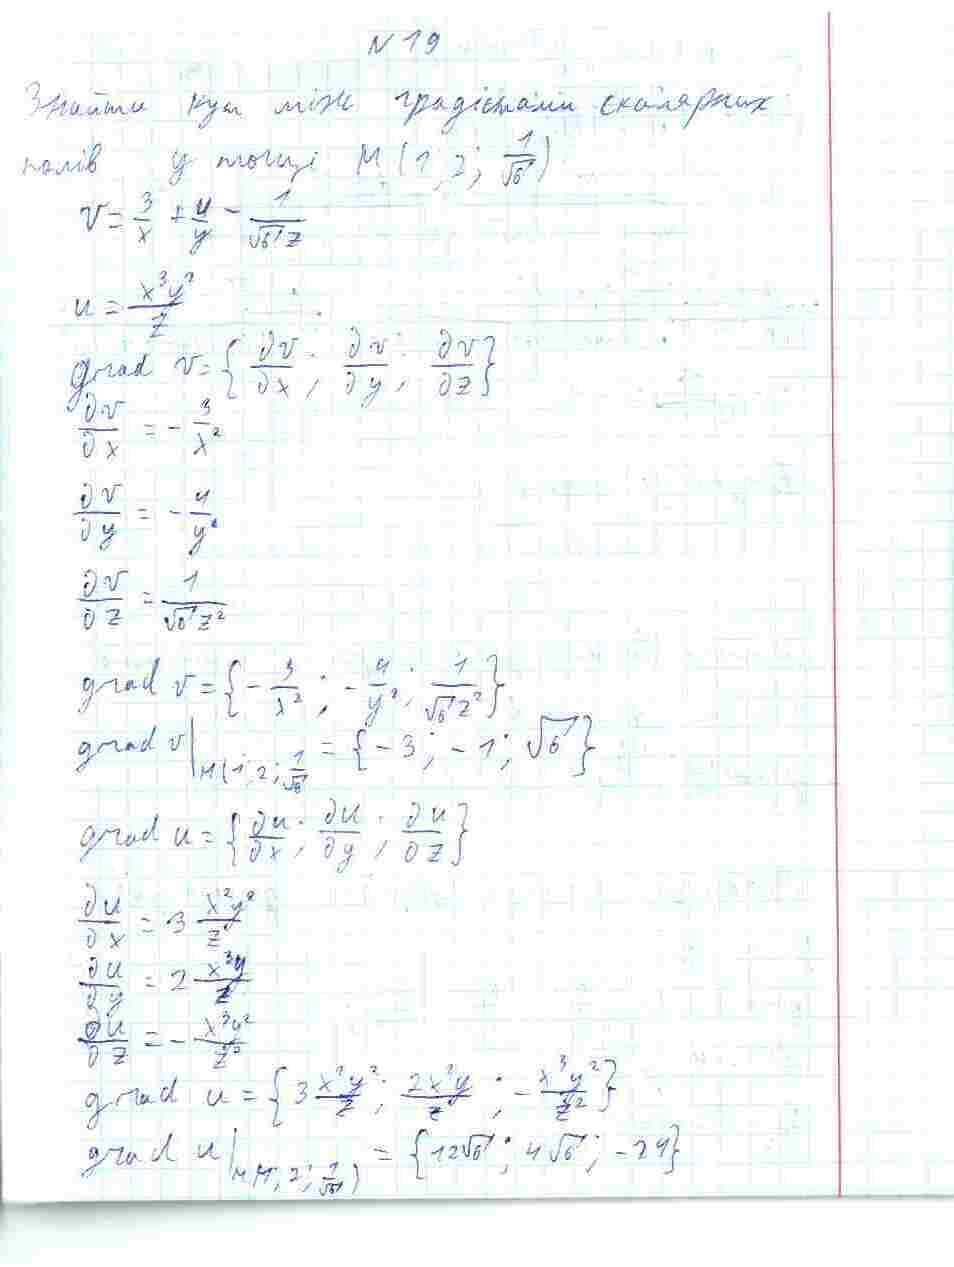 N 19
Знайти кут між градієнтами скалярних
полів у точці M (1; 2; 1/√6)
v = 3/x + 4/y - 1/(√6 z)
u = x³y²/z
grad v = {∂v/∂x; ∂v/∂y; ∂v/∂z}
∂v/∂x = - 3/x²
∂v/∂y = - 4/y²
∂v/∂z = 1/(√6 z²)
grad v = {- 3/x²; - 4/y²; 1/(√6 z²)}
grad v|M(1; 2; 1/√6) = {-3; -1; √6}
grad u = {∂u/∂x; ∂u/∂y; ∂u/∂z}
∂u/∂x = 3 x²y²/z
∂u/∂y = 2 x³y/z
∂u/∂z = - x³y²/z²
grad u = {3 x²y²/z; 2x³y/z; - x³y²/z²}
grad u|M(1; 2; 1/√6) = {12√6; 4√6; -24}